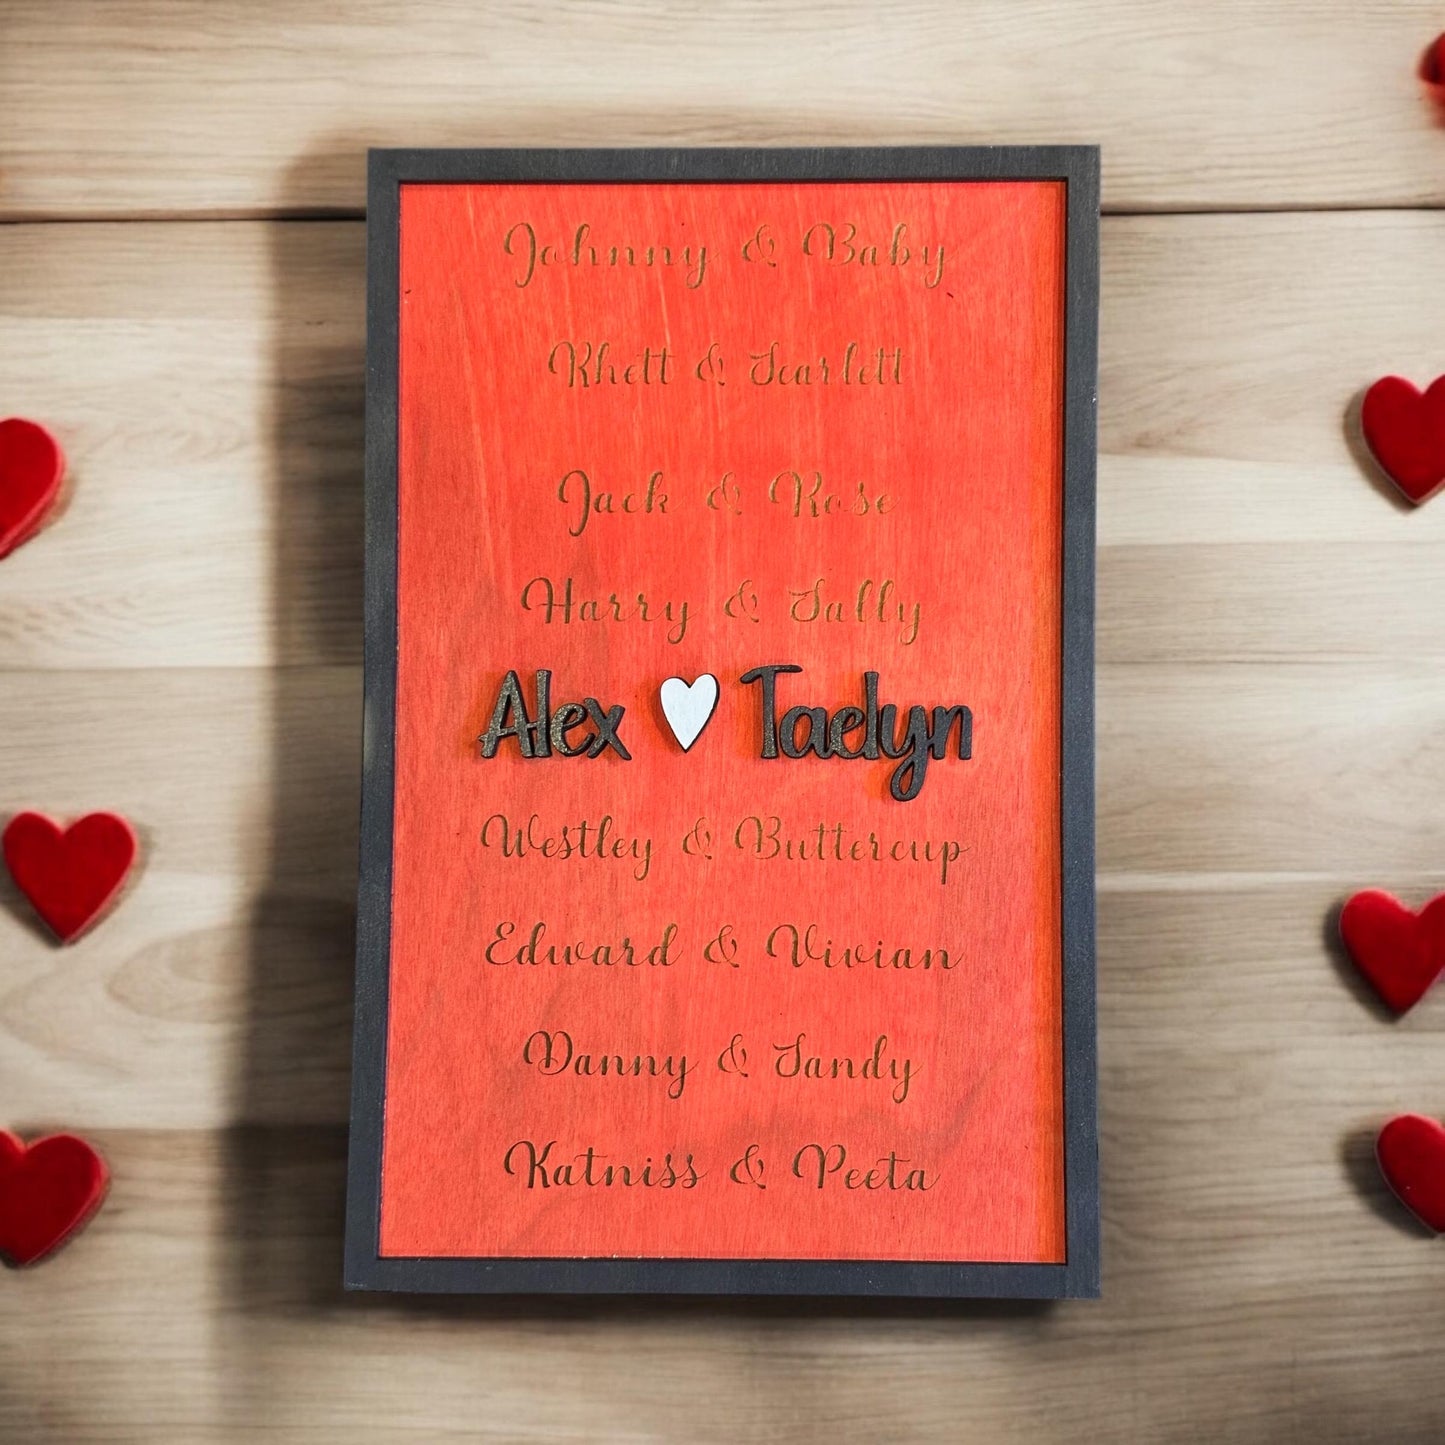 Johnny & Baby
Rhett & Scarlett
Jack & Rose
Harry & Sally
Alex Taelyn
Westley & Buttercup
Edward & Vivian
Danny & Sandy
Katniss & Peeta